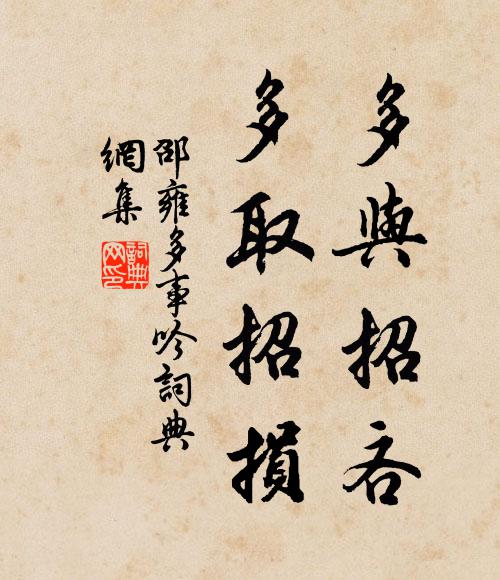 多與招吝
多取招損
邵雍多事吟詞典
網集
詞典
网印